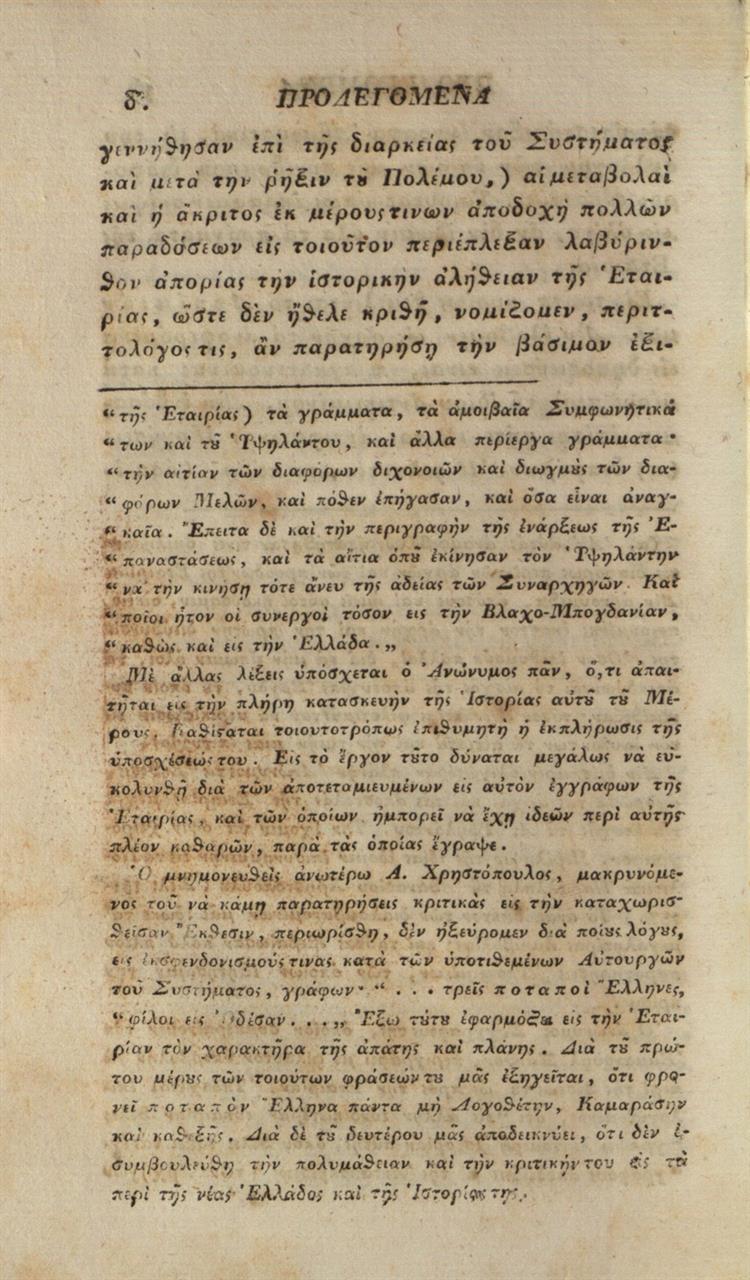 δ'. ΠΡΟΛΕΓΟΜΕΝΑ
γεννήθησαν ἐπὶ τῆς διαρκείας τοῦ Συστήματος
καὶ μετὰ την ῥῆξιν τȣ͂ Πολέμου,) αἱ μεταβολαὶ
καὶ ἡ ἄκριτος ἐκ μέρους τινων ἀποδοχὴ πολλῶν
παραδόσεων εἰς τοιοῦτον περιέπλεξαν λαβύριν-
θον ἀπορίας τὴν ἱστορικὴν ἀλήθειαν τῆς Ἑται-
ρίας, ὥστε δὲν ἤθελε κριθῆ, νομίζομεν, περιτ-
τολόγος τις, ἂν παρατηρήσῃ τὴν βάσιμον ἐξι-
“τῆς Ἑταιρίας) τὰ γράμματα, τὰ ἀμοιβαῖα Συμφωνητικά
“των καὶ τȣ͂ Ὑψηλάντου, καὶ ἄλλα περίεργα γράμματα·
“τὴν αἰτίαν τῶν διαφόρων διχονοιῶν καὶ διωγμȣ̀ς τῶν δια-
“φόρων Μελῶν, καὶ πόθεν ἐπήγασαν, καὶ ὅσα εἶναι ἀναγ-
“καῖα. Ἔπειτα δὲ καὶ τὴν περιγραφὴν τῆς ἐνάρξεως τῆς Ἐ-
“παναστάσεως, καὶ τὰ αἴτια ὁπȣ͂ ἐκίνησαν τὸν Ὑψηλάντην
“να τὴν κινήσῃ τότε ἄνευ τῆς ἀδείας τῶν Συναρχηγῶν. Καὶ
“ποῖοι ἦτον οἱ συνεργοὶ τόσον εις τὴν Βλαχο-Μπογδανίαν,
“καθὼς καὶ εις τὴν Ἑλλάδα.„
Μὲ ἄλλας λέξεις ὑπόσχεται ὁ Ἀνώνυμος πᾶν, ὅ,τι ἀπαι-
τῆται εις τὴν πλήρη κατασκευὴν τῆς Ἱστορίας αὐτȣ͂ τȣ͂ Μέ-
ρους. Καθίσαται τοιουτοτρόπως ἐπιθυμητὴ ἡ ἐκπλήρωσις τῆς
ὑποσχέσεώς του. Εἰς τὸ ἔργον τȣ͂το δύναται μεγάλως νὰ εὐ-
κολυνθῇ διὰ τῶν ἀποτεταμιευμένων εἰς αὐτὸν ἐγγράφων τῆς
Ἑταιρίας, καὶ τῶν ὁποίων ἠμπορεῖ νὰ ἔχῃ ἰδεῶν περὶ αὐτῆς
πλέον καθαρῶν, παρὰ τὰς ὁποίας ἔγραψε.
Ὁ μνημονευθεὶς ἀνωτέρω Α. Χρηστόπουλος, μακρυνόμε-
νος τοῦ νὰ κάμῃ παρατηρήσεις κριτικὰς εἰς τὴν καταχωρισ-
θεῖσαν Ἔκθεσιν, περιωρίσθη, δὲν ἠξεύρομεν διὰ ποίȣς λόγȣς,
εἰς ἐκσφενδονισμούς τινας κατὰ τῶν ὑποτιθεμένων Αὐτουργῶν
τοῦ Συστήματος, γράφων· “... τρεῖς ποταποὶ Ἕλληνες,
“φίλοι εις Ὀδέσαν...„ Ἔξω τȣ́τȣ ἐφαρμόζει εἰς τὴν Ἑται-
ρίαν τὸν χαρακτῆρα τῆς ἀπάτης καὶ πλάνης. Διὰ τȣ͂ πρώ-
του μέρȣς τῶν τοιούτων φράσεών τȣ μᾶς ἐξηγεῖται, ὅτι φρο-
νεῖ ποταπὸν Ἕλληνα πάντα μὴ Λογοθέτην, Καμαράσην
καὶ καθεξῆς. Διὰ δὲ τȣ͂ δευτέρου μᾶς ἀποδεικνύει, ὅτι δὲν ἐ-
συμβουλεύθη τὴν πολυμάθειαν καὶ τὴν κριτικήν του εἰς τὰ
περὶ τῆς νέας Ἑλλάδος καὶ τῆς Ἱστορίας της.